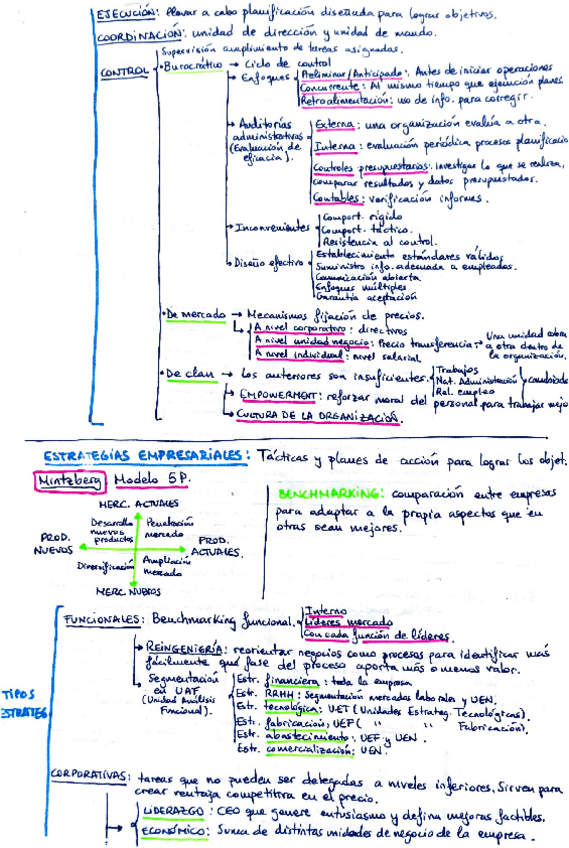 EJECUCIÓN: llevar a cabo planificación diseñada para lograr objetivos.
COORDINACIÓN: unidad de dirección y unidad de mando.
CONTROL
Supervisión cumplimiento de tareas asignadas.
• Burocrático → Ciclo de control
→ Enfoques
Preliminar/Anticipado: Antes de iniciar operaciones
Concurrente: Al mismo tiempo que ejecución planes
Retroalimentación: uso de info. para corregir.
→ Auditorías administrativas (Evaluación de eficacia).
Externa: una organización evalúa a otra.
Interna: evaluación periódica procesos planificació
Controles presupuestarios: investigar lo que se realiza,
comparar resultados y datos presupuestados.
Contables: verificación informes.
→ Inconvenientes
Comport. rígido
Comport. táctico.
Resistencia al control.
→ Diseño efectivo
Establecimiento estándares válidos
Suministro info. adecuada a empleados.
Comunicación abierta
Enfoques múltiples
Garantía aceptación
• De mercado → Mecanismos fijación de precios.
A nivel corporativo: directivos
A nivel unidad negocio: Precio transferencia → Una unidad cobra
a otra dentro de
la organización.
A nivel individual: nivel salarial
• De clan → Los anteriores son insuficientes
Trabajos
Nat. Administración
Rel. empleo
→ EMPOWERMENT: reforzar moral del personal para trabajar mejo
→ CULTURA DE LA ORGANIZACIÓN.
ESTRATEGIAS EMPRESARIALES: Tácticas y planes de acción para lograr los objet.
Mintzberg Modelo 5P.
MERC. ACTUALES
Desarrollo nuevos productos
Penetración mercado
PROD. NUEVOS
PROD. ACTUALES.
Diversificación
Ampliación mercado
MERC. NUEVOS
BENCHMARKING: comparación entre empresas
para adaptar a la propia aspectos que en
otras sean mejores.
TIPOS
ESTRATEG
FUNCIONALES: Benchmarking funcional.
Interno
Líderes mercado
Con cada función de líderes.
→ REINGENIERÍA: reorientar negocios como procesos para identificar más
fácilmente qué fase del proceso aporta más o menos valor.
→ Segmentación en UAF (Unidad Análisis Funcional).
Estr. financiera: toda la empresa
Estr. RRHH: Segmentación mercados laborales y UEN.
Estr. tecnológica: UET (Unidades Estrateg. Tecnológicas).
Estr. fabricación: UEF ( " " Fabricación).
Estr. abastecimiento: UEF y UEN.
Estr. comercialización: UEN.
CORPORATIVAS: tareas que no pueden ser delegadas a niveles inferiores. Sirven para
crear ventaja competitiva en el precio.
LIDERAZGO: CEO que genere entusiasmo y defina mejoras factibles.
ECONÓMICO: Suma de distintas unidades de negocio de la empresa.